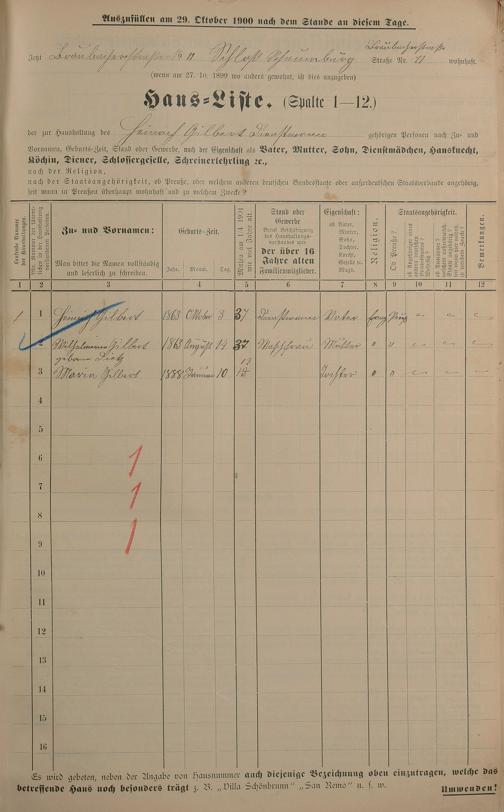 Auszufüllen am 29. Oktober 1900 nach dem Stande an diesem Tage.
Braubacherstraße
Jetzt Braubacherstraße No 11 Schloß Schaumburg Straße Nr. 11 wohnhaft.
(wenn am 27. 10. 1899 wo anders gewohnt, ist dies anzugeben)
Haus-Liste. (Spalte 1—12.)
der zur Haushaltung des Heinrich Gilbert Dienstmann gehörigen Personen nach Zu- und
Vornamen, Geburts-Zeit, Stand oder Gewerbe, nach der Eigenschaft als Vater, Mutter, Sohn, Dienstmädchen, Hausknecht,
Köchin, Diener, Schlossergeselle, Schreinerlehrling ec.,
nach der Religion,
nach der Staatsangehörigkeit, ob Preuße, oder welchem anderen deutschen Bundesstaate oder außerdeutschen Staatsverbande angehörig,
seit wann in Preußen überhaupt wohnhaft und zu welchem Zwecke?
Zu- und Vornamen:
Man bittet die Namen vollständig
und leserlich zu schreiben.
Geburts-Zeit.
Jahr. Monat. Tag.
Stand oder
Gewerbe
der über 16
Jahre alten
Familienmitglieder.
Eigenschaft:
ob Vater,
Mutter,
Sohn,
Tochter,
Knecht,
Geselle o.
Magd.
Religion.
Staatsangehörigkeit.
Ob Preuße?
Bemerkungen.
1 2 3 4 5 6 7 8 9 10 11 12
1 1 Heinrich Gilbert 1863 Oktober 3 37 Dienstmann Vater evang Preuß
2 Wilhelmine Gilbert 1863 August 19 37 Waschfrau Mutter
geborne
3 Maria Gilbert 1888 Januar 10 12 Tochter
4
5
6 1
7 1
8 1
9
10
11
12
13
14
15
16
Es wird gebeten, neben der Angabe von Hausnummer auch diejenige Bezeichnung oben einzutragen, welche das
betreffende Haus noch besonders trägt z. B. „Villa Schönbrunn“ „San Remo“ u. s. w. Umwenden!